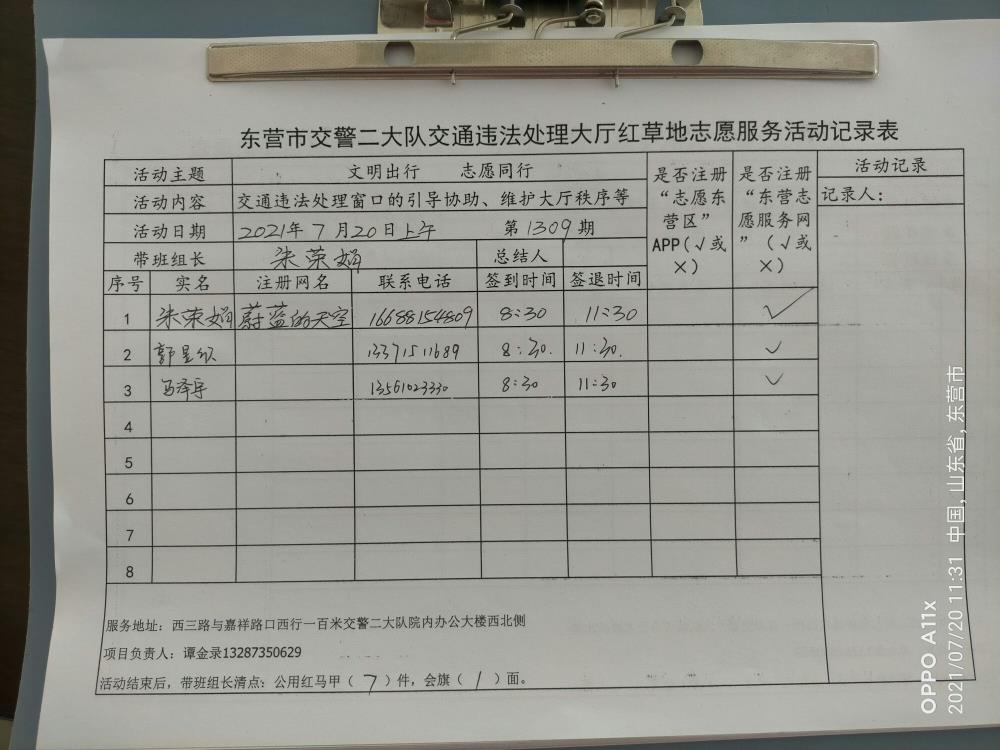 东营市交警二大队交通违法处理大厅红草地志愿服务活动记录表
活动主题 文明出行 志愿同行 是否注册“志愿东营区”APP(√或×) 是否注册“东营志愿服务网”(√或×) 活动记录
活动内容 交通违法处理窗口的引导协助、维护大厅秩序等 记录人:
活动日期 2021年7月20日上午 第1309期
带班组长 朱荣娟 总结人
序号 实名 注册网名 联系电话 签到时间 签退时间
1 朱荣娟 蔚蓝的天空 16688154809 8:30 11:30 √
2 郭 13371511689 8:30. 11:30. √
3 马泽宇 13561023330 8:30 11:30 √
4
5
6
7
8
服务地址: 西三路与嘉祥路口西行一百米交警二大队院内办公大楼西北侧
项目负责人: 谭金录13287350629
活动结束后,带班组长清点: 公用红马甲(7)件,会旗(1)面。
OPPO A11x
2021/07/20 11:31 中国,山东省,东营市